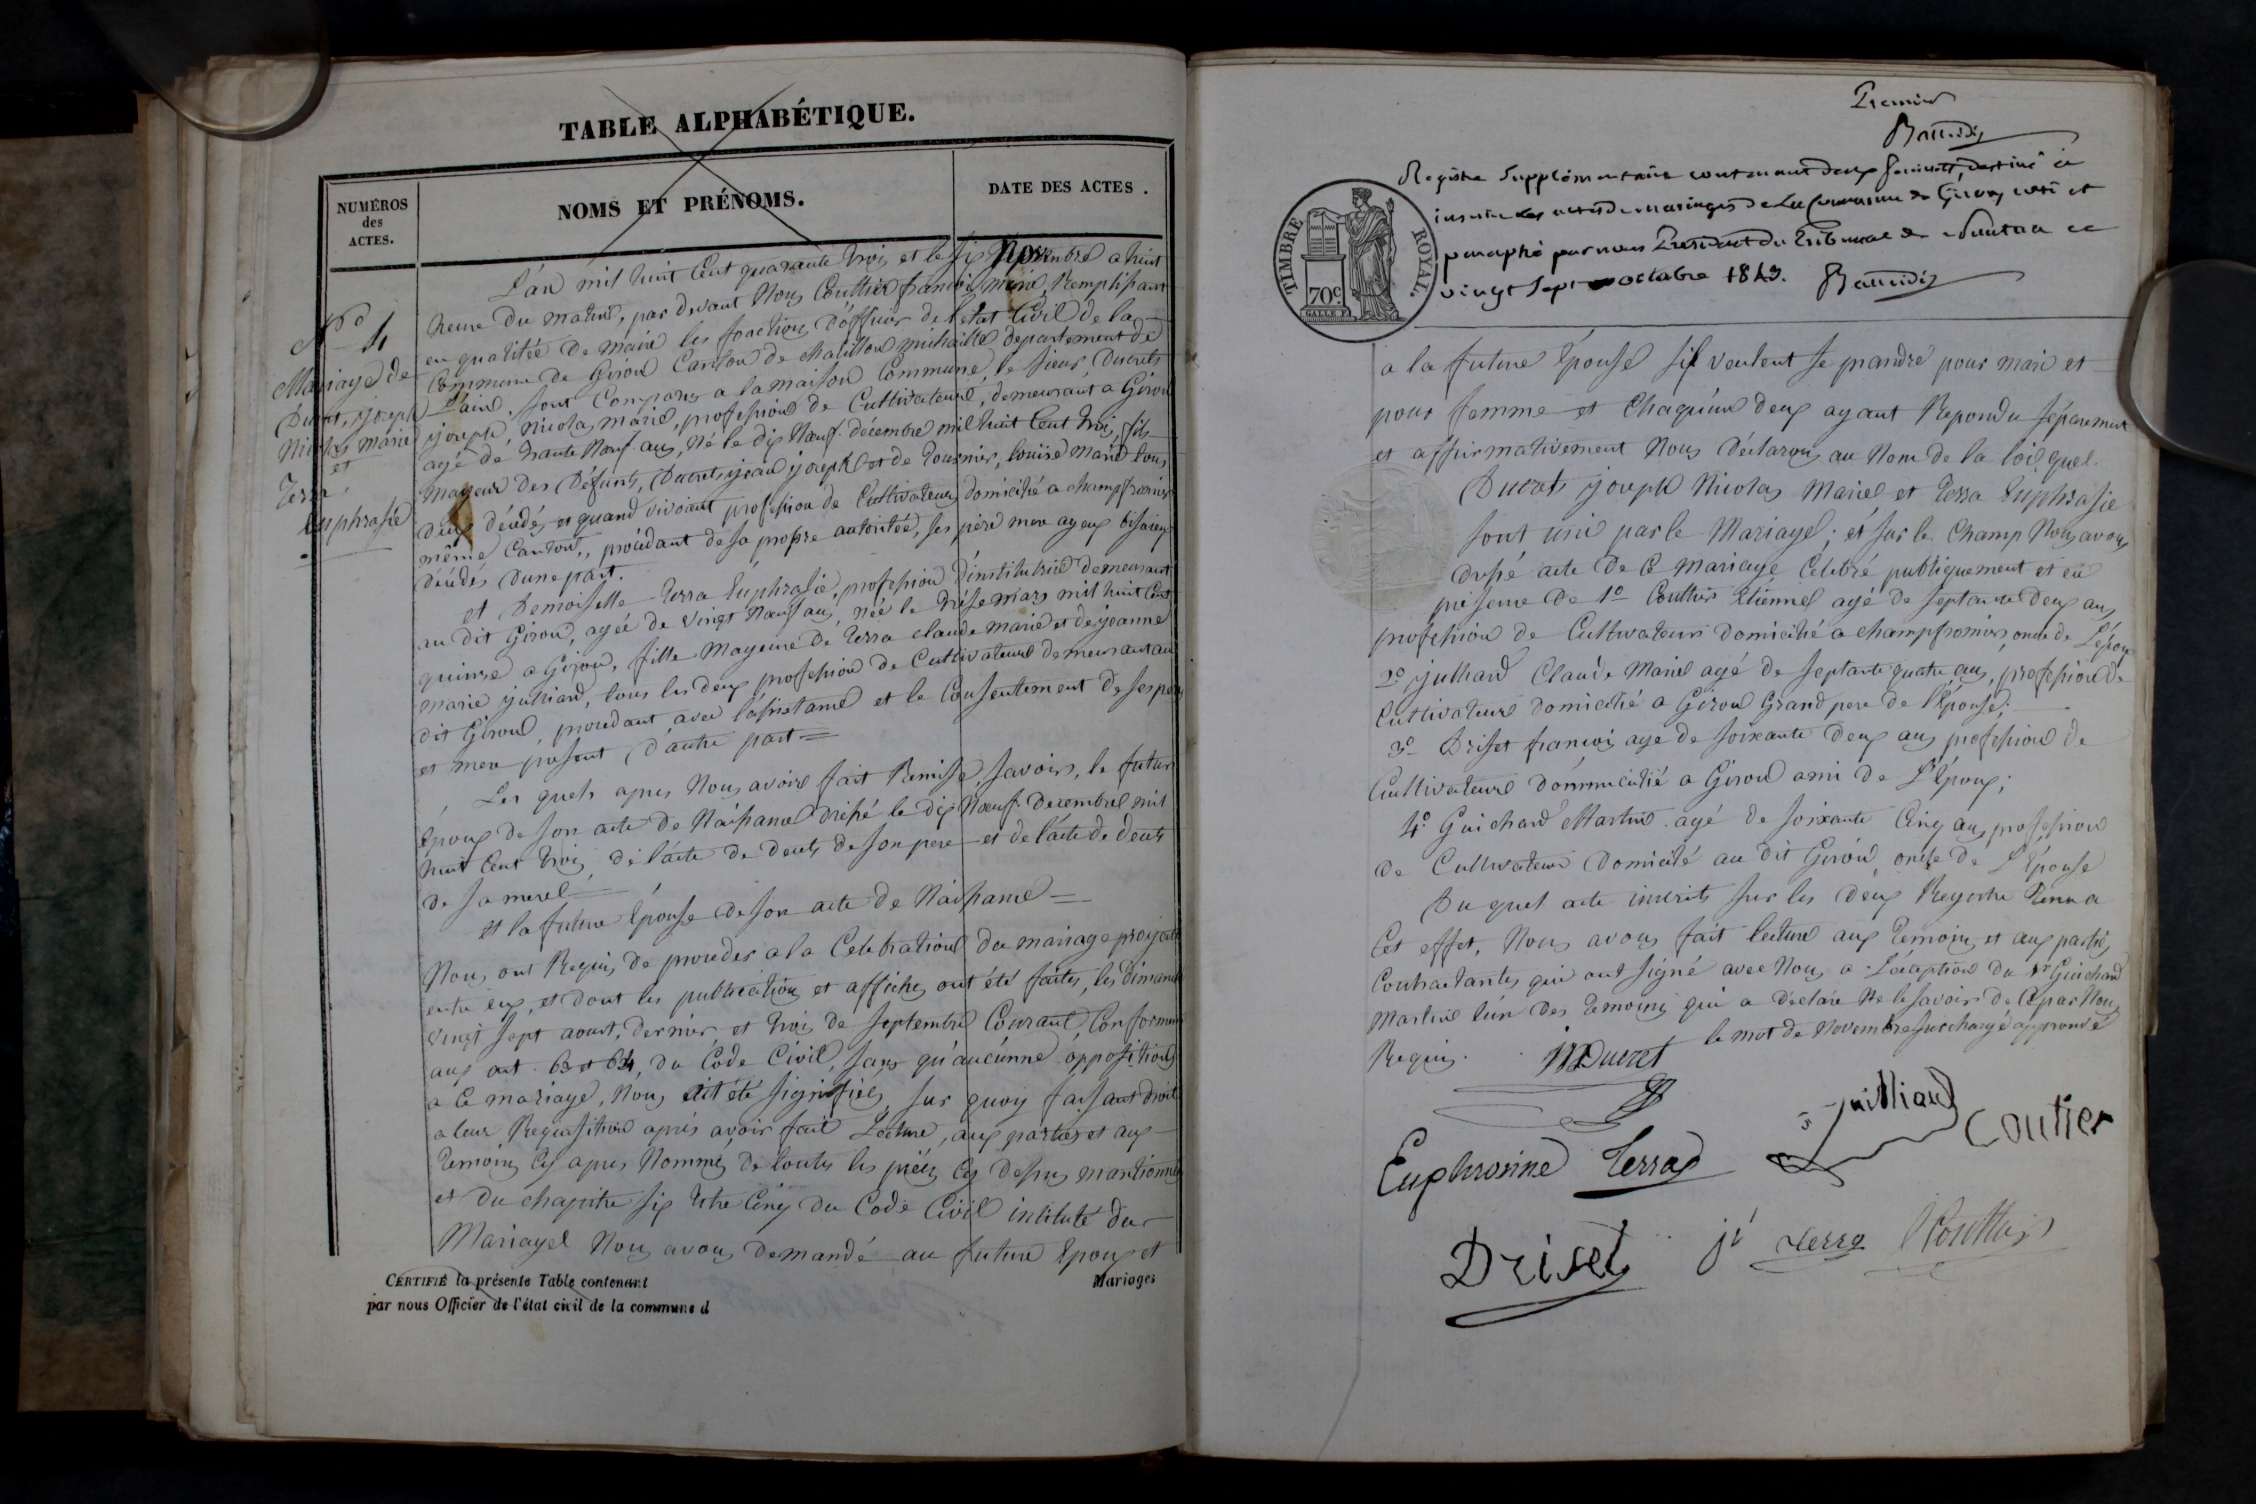 TABLE ALPHABÉTIQUE.
NUMÉROS
des
ACTES.
NOMS ET PRÉNOMS.
DATE DES ACTES.
N° 4
Mariage de
Ducret, joseph
Nicolas Marie
et
Terra
Euphrasie
L'an mil huit Cent quarante trois et le six Novembre a huit
heure du matin, par devant Nous Coutties francois marie, Remplissant
en qualitée de maire les fonctions d'officier de l'etat Civil de la
Commune de Giron Canton de chatillon michaille departement de
L'ain, sont Comparus a la maison Commune, le sieur, Ducrets
joseph, Nicolas marie, profession de Cultivateur, demeurant a Giron
agé de trante Nœuf ans, Né le dix Nœuf décembre mil huit Cent trois, fils
Mageur des Défunts, Ducrets jean joseph et de Tournier, Louise marie tous
deux décédés et quand vivoient profession de Cultivateurs domicilié a champfromier
même Canton, procédant de sa propre autoritée, ses père mere ayeux bisaieux
décédés d'une part.
et Demoiselle Terra Euphrasie, profession d'institutrice demeurant
au dit Giron, agée de vingt Nœuf ans, née le treise mars mil huit Cent
quinse a Giron, fille Mageure de Terra claude marie et de jeanne
marie julliard, tous les deux profession de Cultivateurs demeurant au
dit Giron, procedant avec l'assistance et le Consentement de ses pere
et mere present d'autre part =
Les quels apres Nous avoir fait Remise, savoir, le futur
Époux de son acte de Naissance dressé le dix Nœuf Decembre mil
huit Cent trois, de l'acte de deces de son pere et de l'acte de deces
de sa mere
et la future Épouse de son acte de Naissance =
Nous ont Requis de proceder a la Celebration du mariage projeté
entre eux, et dont les publications et affiches ont été faites, les dimanche
vingt sept aoust, dernier et trois de septembre Courant, Conformement
aux art. 63 et 64, du Code Civil, sans qu'aucunne opposition
a Ce mariage, Nous ait été signifiés, sur quoy faisant droit
a leur Requisition après avoir fait Lecture, aux parties et aux
Temoins Cy apres Nommés de toutes les pièces Cy dessus mantionnés
et du chapitre six titre Cinq du Code Civil intitulé du
Mariage Nous avons demandé au future Epoux et
CERTIFIÉ la présente Table contenant
Mariages
par nous Officier de l'état civil de la commune d
Premier
Registre supplémentaire contenant deux feuillets, destiné à
inscrire les actes de mariages de La Commune de Giron coté et
paraphé par nous Président du Tribunal de Nantua ce
vingt sept octobre 1843.
TIMBRE ROYAL.
70c
a la future Épouse sil veulent se prandre pour mari et
pour femme et Chaqu'un deux ayant Repondu séparement
et affirmativement Nous Déclarons au Nom de la loi quel
Ducrets joseph Nicolas Marie et Terra Euphrasie
sont uni par le Mariage; et sur le Champ Nous avons
dressé acte de Ce mariage Célébré publiquement et en
présence de 1° Coutties Étienne agé de septante deux ans
profession de Cultivateur domicilié a champfromier, oncle de l'époux
2° julliard Claude Marie agé de septante quatre ans, profession de
Cultivateur domicilié a Giron Grand pere de l'Épouse;
3° Driset francois age de soixante deux ans profession de
Cultivateur dommicilié a Giron ami de L'Époux;
4° Guichard Martin agé de soixante Cinq ans, profession
de Cultivateur domicilé au dit Giron oncle de L'Épouse
Du quel acte inscrits sur les deux Registre Tenu a
Cet effet, Nous avons fait lecture aux Temoins et aux parties
Contractantes qui ont signé avec Nous a L'éxception du sr Guichard
Martin l'un des Temoins qui a déclaré Ne le savoir de Ce par Nous
Requis. le mot de Novembre surchargé approuvé
Ducret
julliard
Coutier
Euphrosine Terra
Driset
Terra